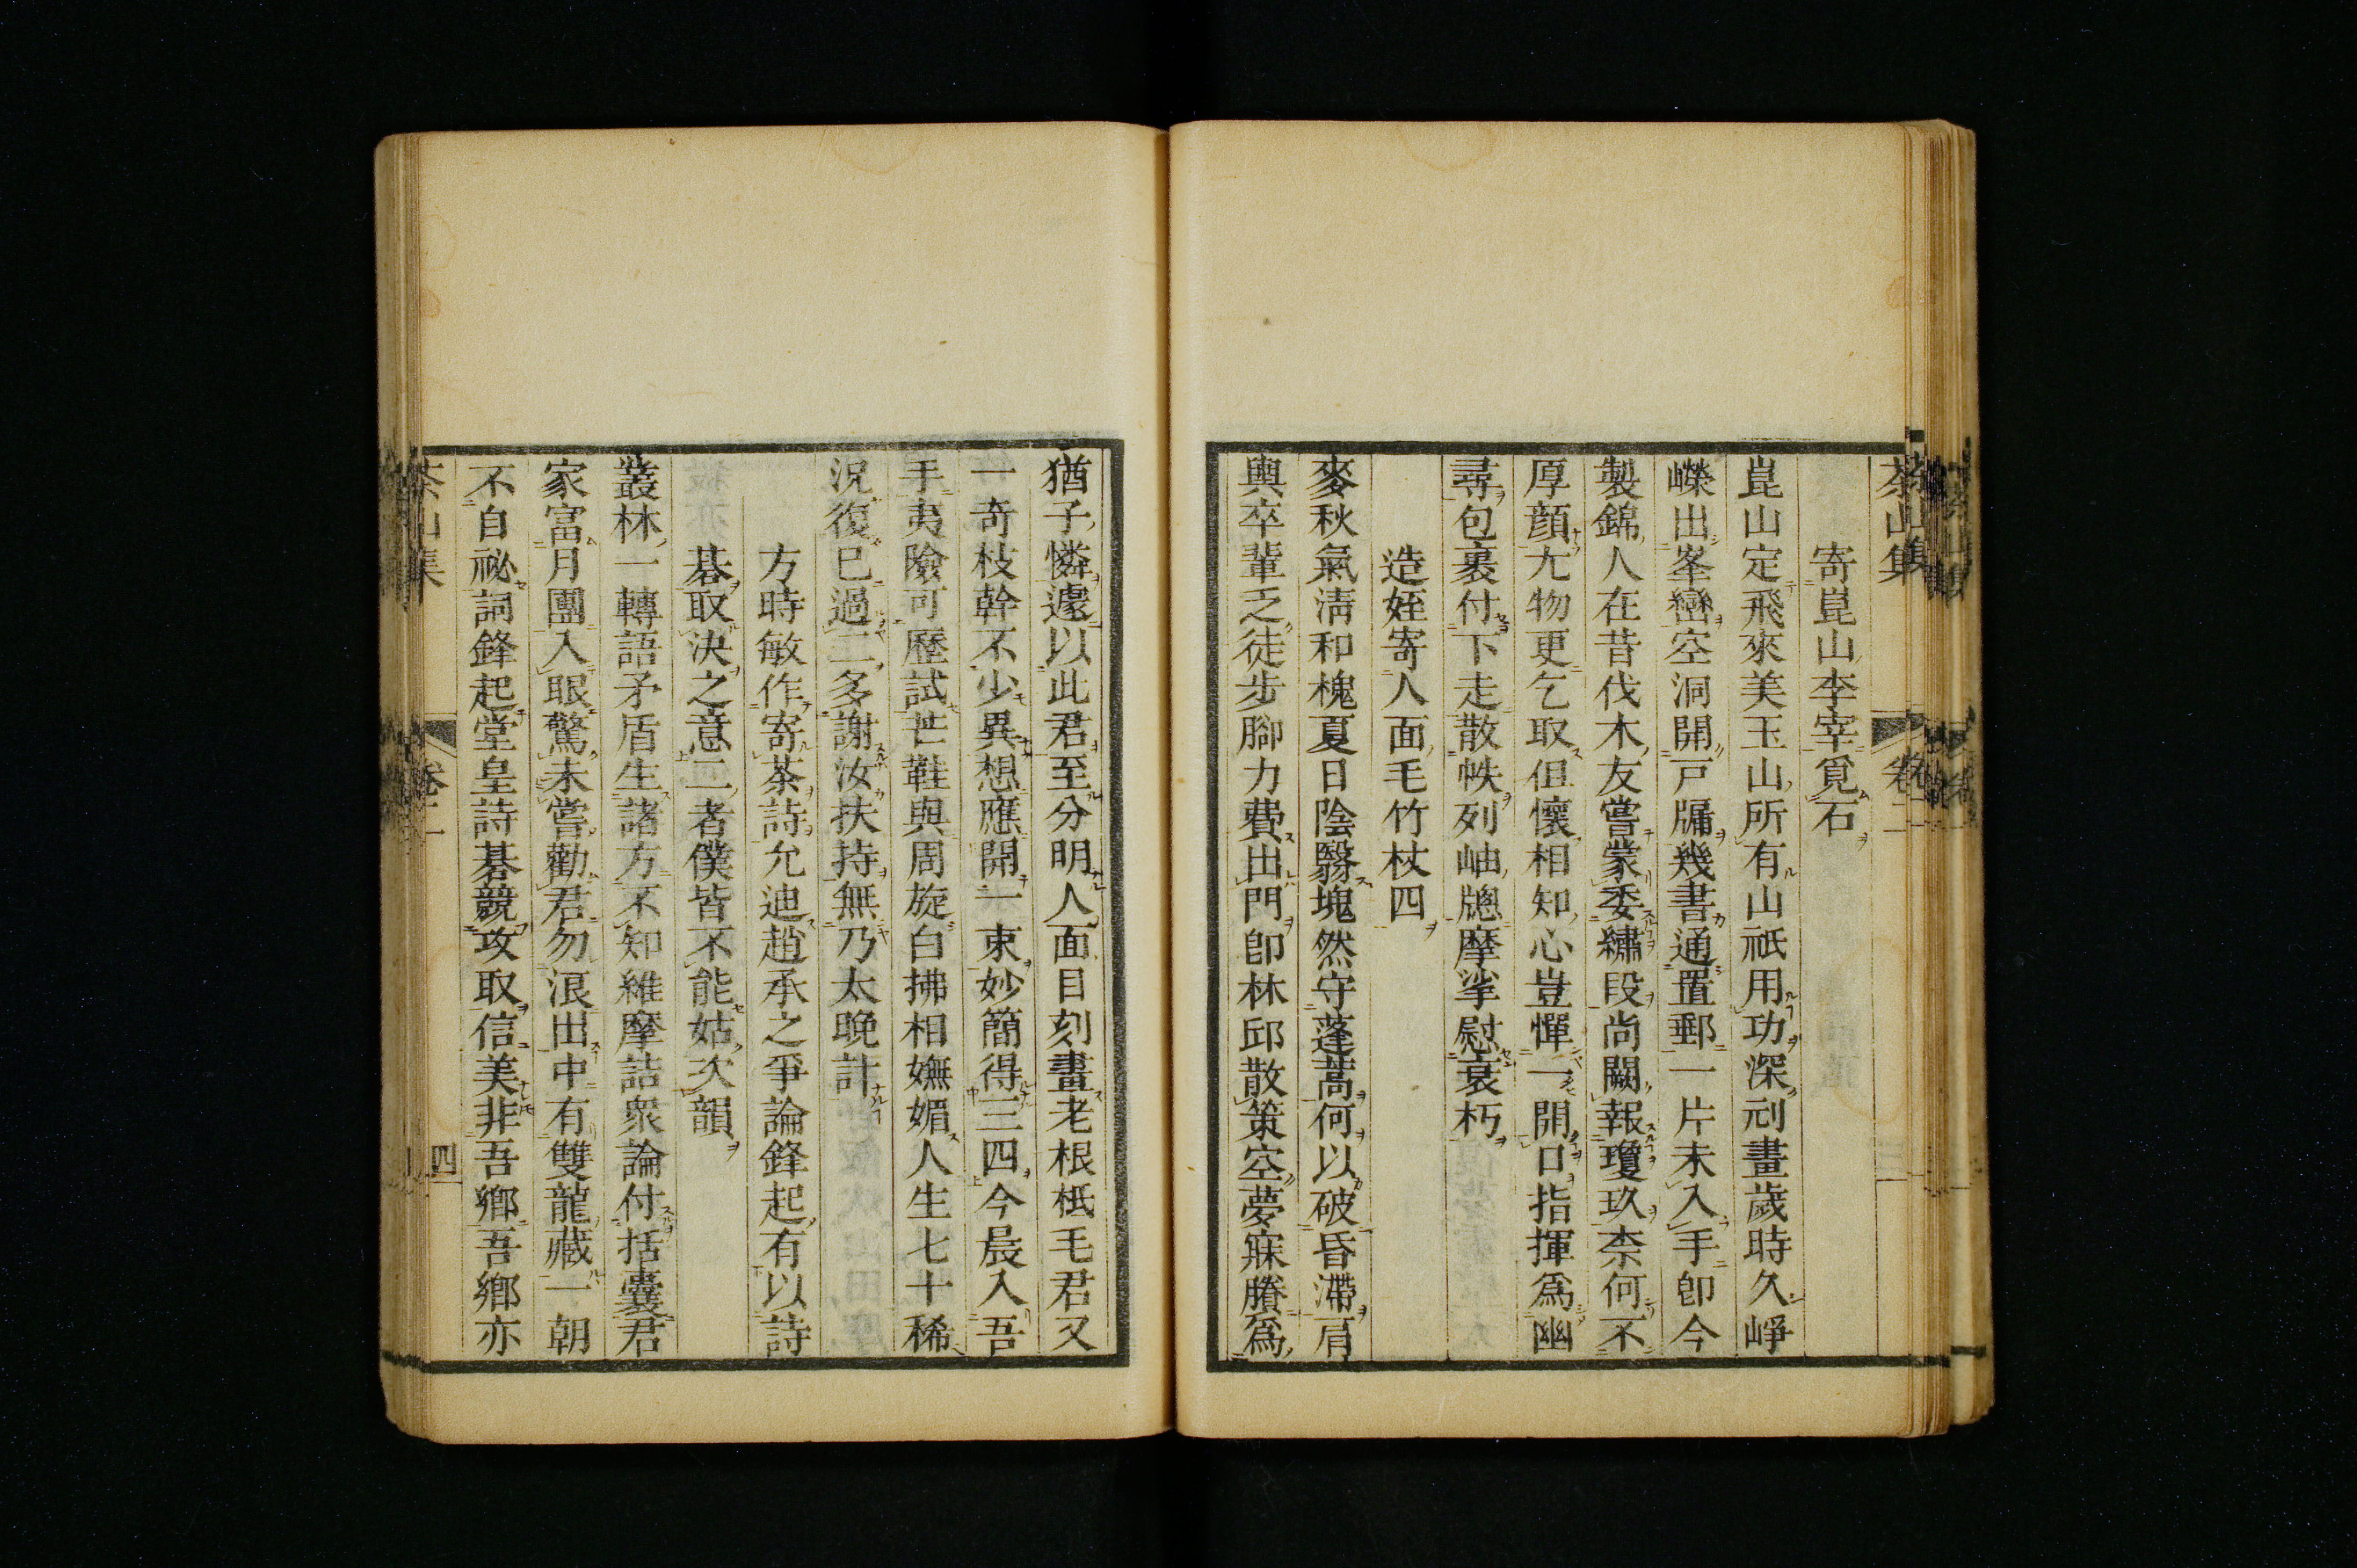 茶山集 卷二
寄崑山李宰覓石
崑山定飛來美玉山所有山祇用功深刓畫歲時久崢
嶸出峯巒空洞開戸牖幾書通置郵一片未入手卽今
製錦人在昔伐木友嘗蒙委繡段尚闕報瓊玖柰何不
厚顔尢物更乞取但懷相知心豈憚一開口指揮爲幽
尋包裹付下走散帙列岫牕摩挲慰衰朽
造姪寄人面毛竹杖四
麥秋氣淸和槐夏日陰翳塊然守蓬蒿何以破昏滯肩
輿卒輩乏徒步腳力費出門卽林邱散策空夢寐賸爲
猶子憐遽以此君至分明人面目刻畫老根柢毛君又
一奇枝幹不少異想應開一束妙簡得三四今晨入吾
手夷險可歷試芒鞋與周旋白拂相嫵媚人生七十稀
況復巳過二多謝汝扶持無乃太晚計
方時敏作寄茶詩允迪趙承之爭論鋒起有以詩
碁取決之意二者僕皆不能姑次韻
叢林一轉語矛盾生諸方不知維摩詰衆論付括囊君
家富月團入眼驚未嘗勸君勿浪出中有雙龍藏一朝
不自祕詞鋒起堂皇詩碁競攻取信美非吾鄉吾鄉亦
茶山集 卷二 四